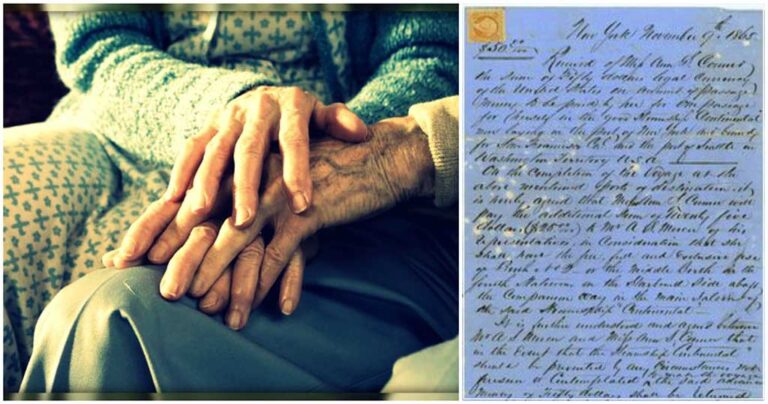 New York November 9th 1865
$50.00
Received of Miss Ann S. Connor
the Sum of Fifty dollars legal Currency
of the United States on account of passage
Money to be paid by her for One passage
for herself in the good Steamship Continental
now laying in the port of New York and bound
for San Francisco Cal and the port of Seattle in
Washington Territory U.S.A.
On the Completion of the Voyage at the
above mentioned ports of destination it
is hereby agreed that Miss Ann S Connor will
pay the additional Sum of Twenty five
dollars ($25.00) to Mr A. S. Mercer or his
representatives, in Consideration that she
Shall have the free, full and exclusive use
of Berth No 2 or the Middle Berth in the
fourth Stateroom on the Starboard Side abaft
the Companion way in the main Saloon of
the said Steamship Continental
It is further understood and agreed between
Mr A. S. Mercer and Miss Ann S. Connor that
in the Event that the Steamship Continental
should be prevented by any Circumstances not
to make the voyage
foreseen or Contemplated the said advance
Money of Fifty dollars shall be returned